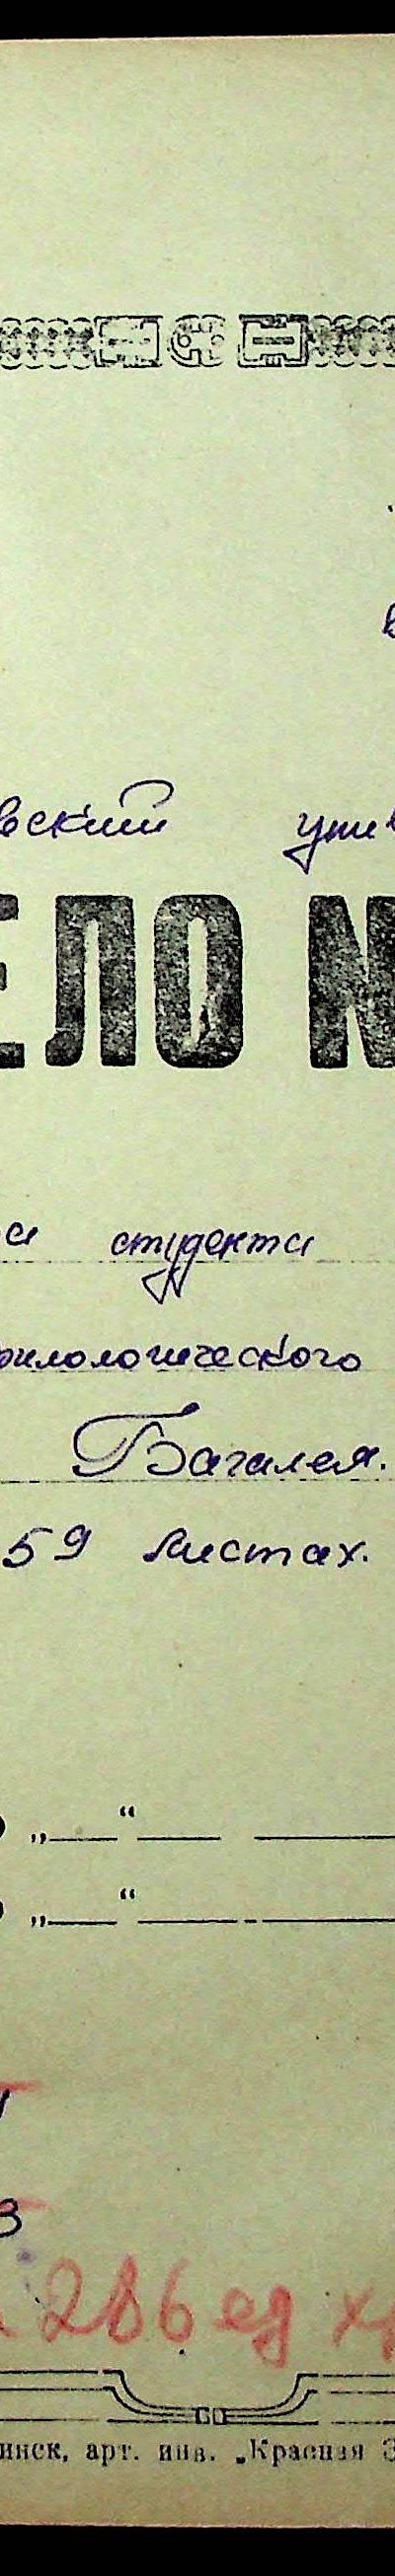 вский унив
ЕЛО №
студента
филологического
Багалея.
59 листах.
„ “
„ “
3
286 ед хр
инск, арт. инв. „Красная З